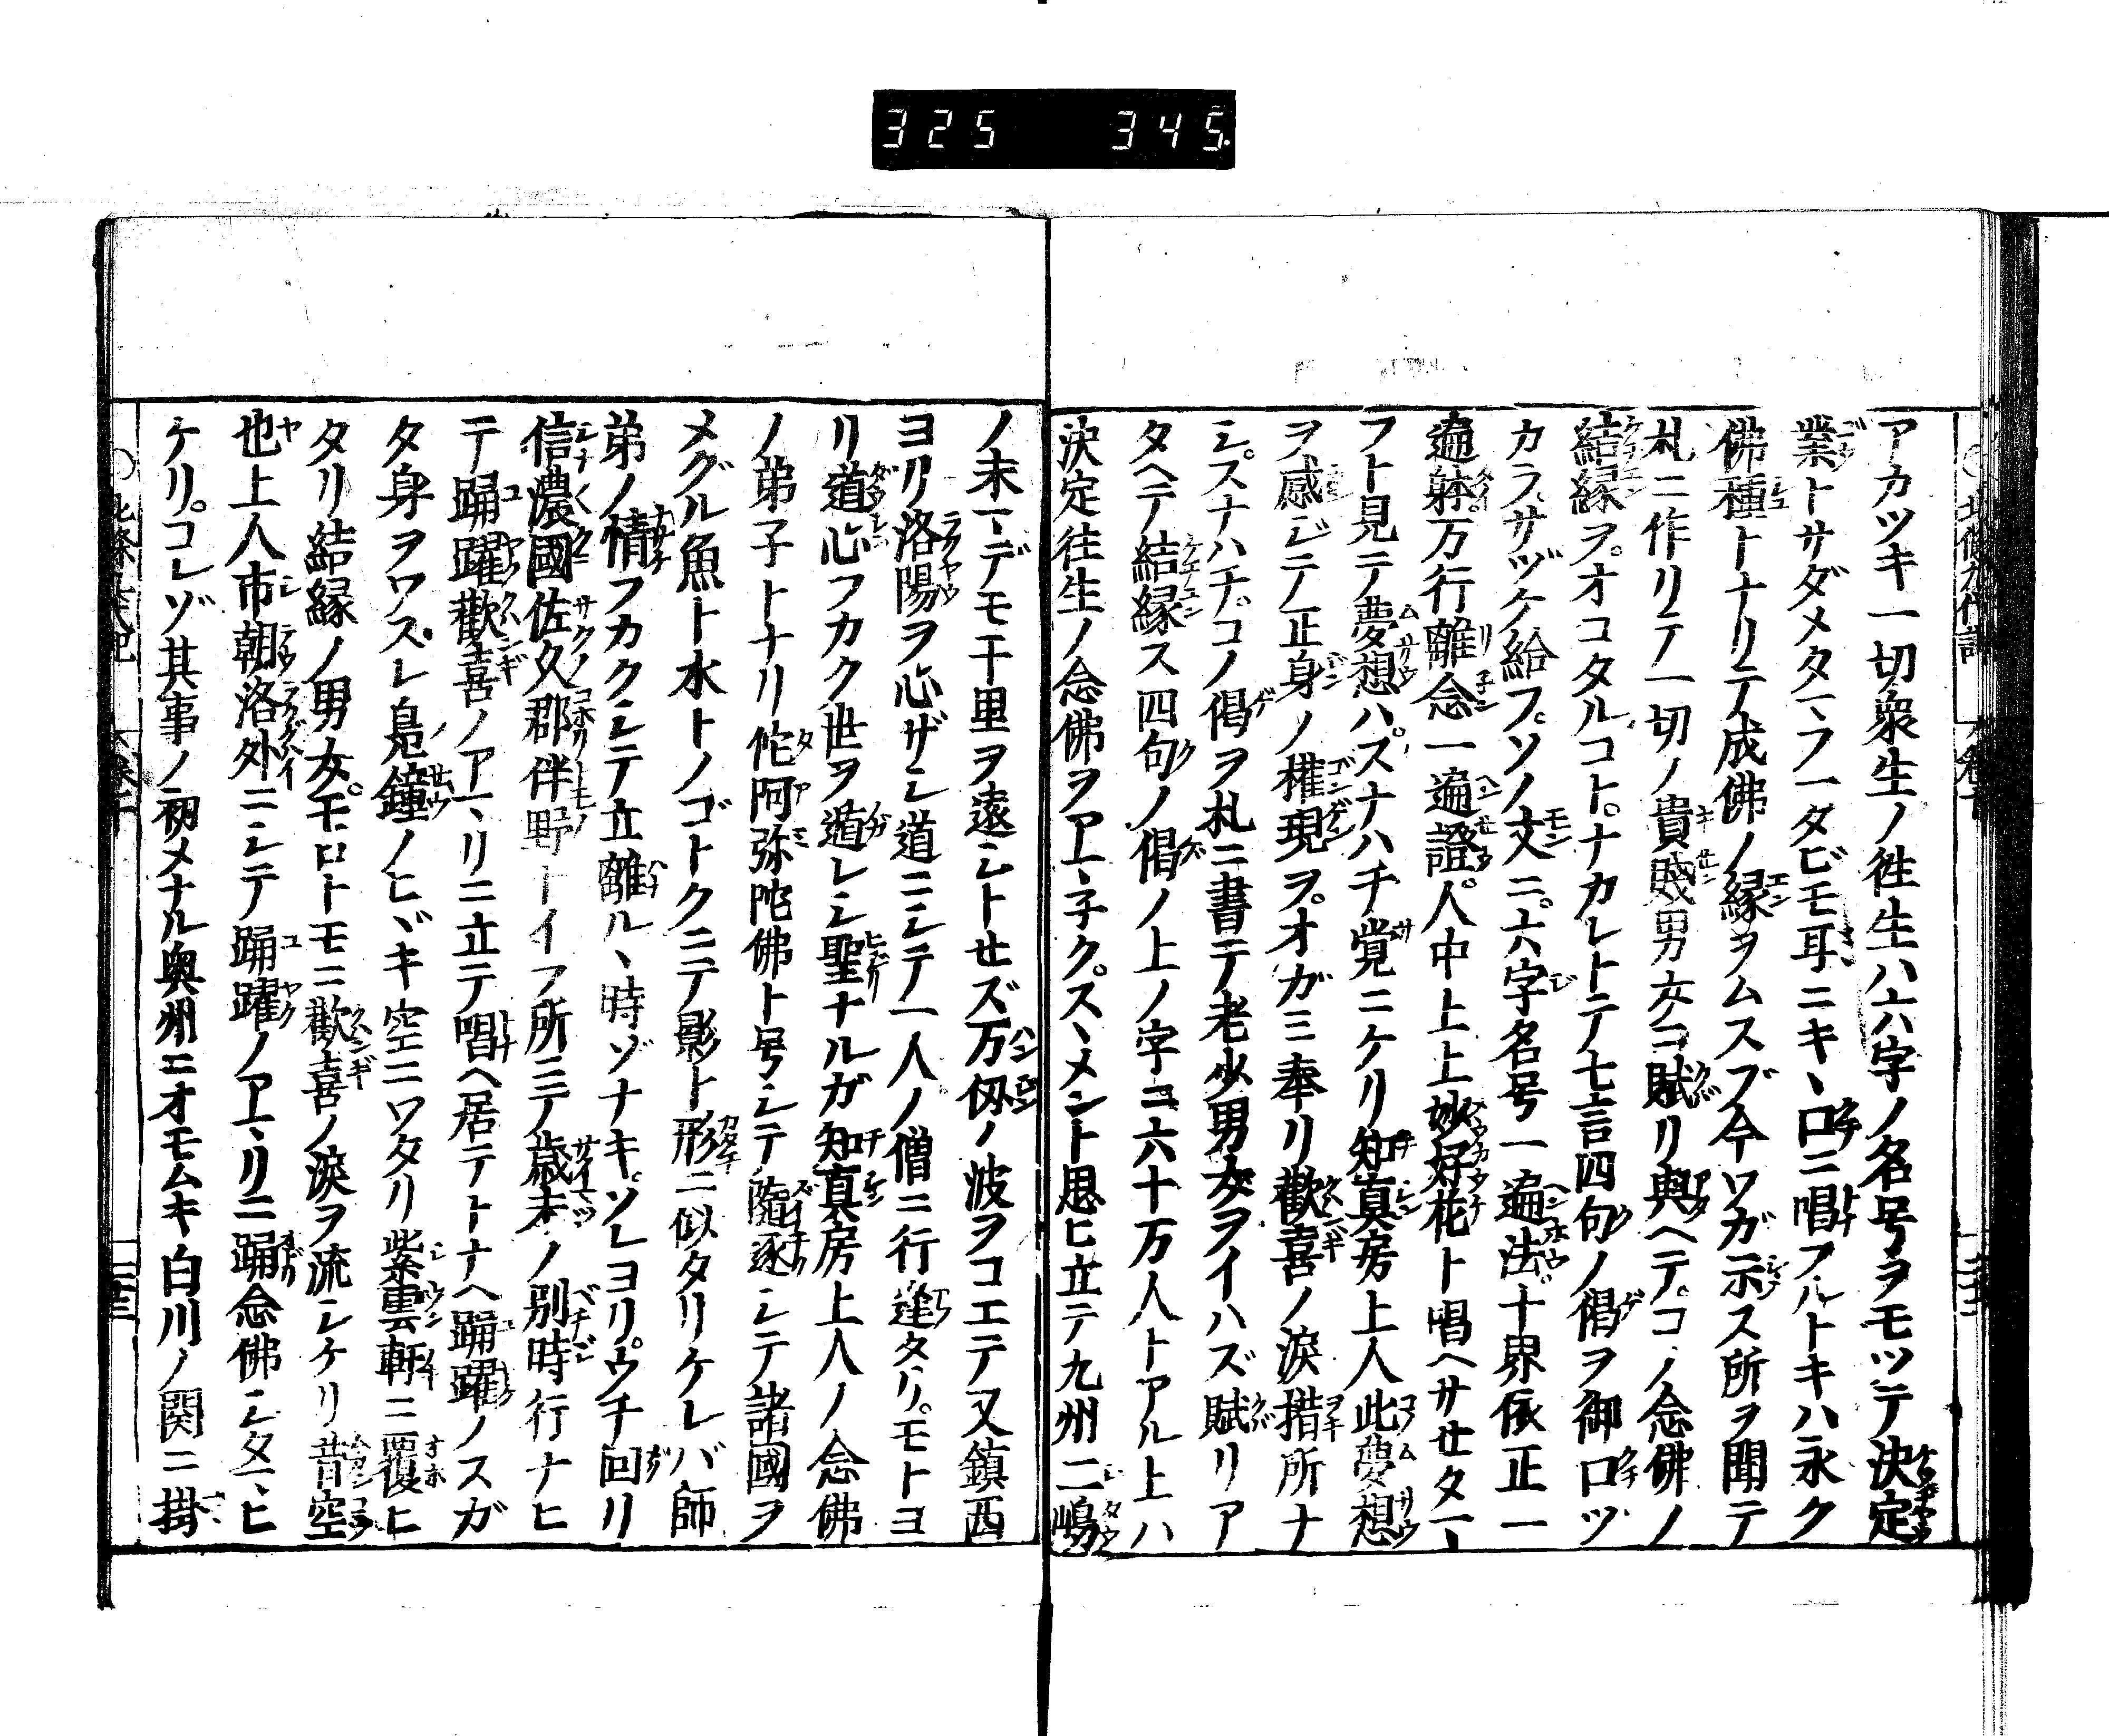 325 345
アカツキ一切衆生ノ徃生ハ六字ノ名号ヲモツテ決定
業トサダメタマフ一タビモ耳ニキヽ口ニ唱フルトキハ永ク
佛種トナリテ成佛ノ縁ヲムスブ今ワガ示ス所ヲ聞テ
札ニ作リテ一切ノ貴賎男女ニ賦リ與ヘテ。コノ念佛ノ
結縁ヲ。オコタルコト。ナカレトテ七言四句ノ偈ヲ御口ヅ
カラ。サヅケ給フ。ソノ文ニ。六字名号一遍法十界依正一
遍躰。万行離念一遍證。人中上上妙好花ト唱ヘサセタマヽ
フト見テ夢想ハ。スナハチ覚ニケリ知真房上人此夢想
ヲ感ジテ正身ノ権現ヲ。オガミ奉リ歡喜ノ涙措所ナ
シ。スナハチ。コノ偈ヲ札ニ書テ老少男女ヲイハズ賦リア
タヘテ結縁ス四句ノ偈ノ上ノ字ヨ六十万人トアル上ハ
決定徃生ノ念佛ヲアマ子ク。スヽメント思ヒ立テ九州二嶋
ノ末マデモ千里ヲ遠シトセズ万仭ノ波ヲコエテ又鎮西
ヨリ洛陽ヲ心ザシ道ニシテ一人ノ僧ニ行逢タリ。モトヨ
リ道心フカク世ヲ遁レシ聖ナルガ知真房上人ノ念佛
ノ弟子トナリ佗阿弥陀佛ト号シテ隨逐シテ諸國ヲ
メグル魚ト水トノゴトクニテ影ト形ニ似タリケレバ師
弟ノ情フカクシテ立離ルヽ時ゾナキ。ソレヨリ。ウチ回リ
信濃國佐久郡伴野トイフ所ニテ歳末ノ別時行ナヒ
テ踊躍歡喜ノアマリニ立テ唱ヘ居テトナヘ踊躍ノスガ
タ身ヲワスレ鳧鐘ノヒヾキ空ニワタリ紫雲軒ニ覆ヒ
タリ結縁ノ男女。モロトモニ歡喜ノ涙ヲ流シケリ昔空
也上人市朝洛外ニシテ踊躍ノアマリニ踊念佛シタマヒ
ケリ。コレゾ其事ノ初メナル奥州エオモムキ白川ノ関ニ掛
北條九代記 卷十